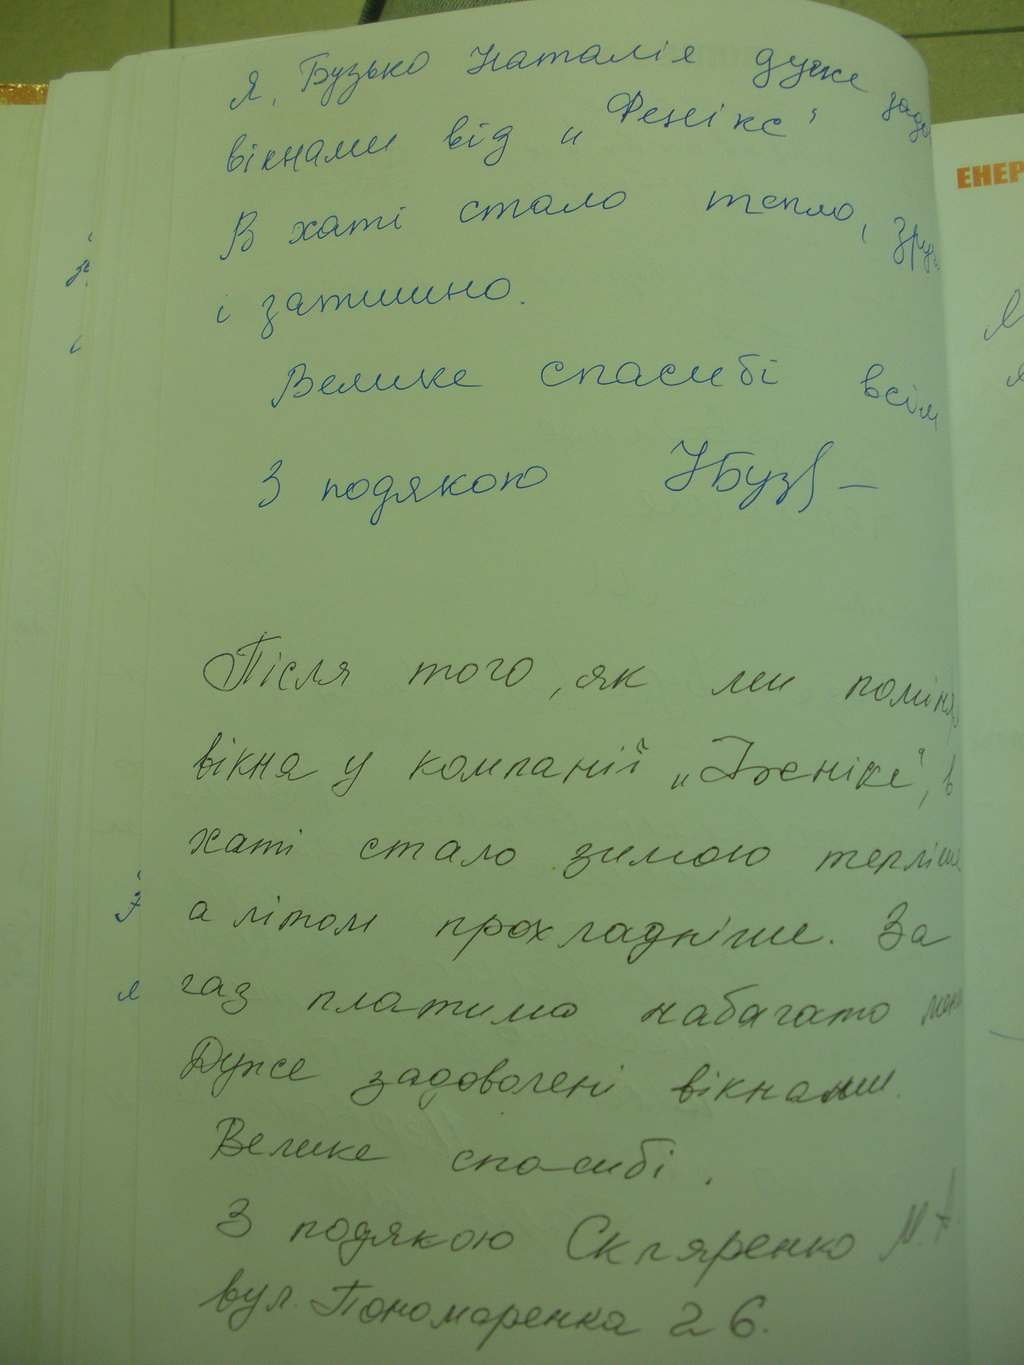 Я, Бузько Наталія дуже задо
вікнами від „Фенікс"
В хаті стало тепло, зруч
і затишно.
Велике спасибі всім
З подякою НБуз
Після того, як ми поміня
вікна у компанії „Фенікс", в
хаті стало зимою тепліше
а літом прохладніше. За
газ платимо набагато
Дуже задоволені вікнами.
Велике спасибі.
З подякою Скляренко М.А.
вул. Пономаренка 26.
ЕНЕР